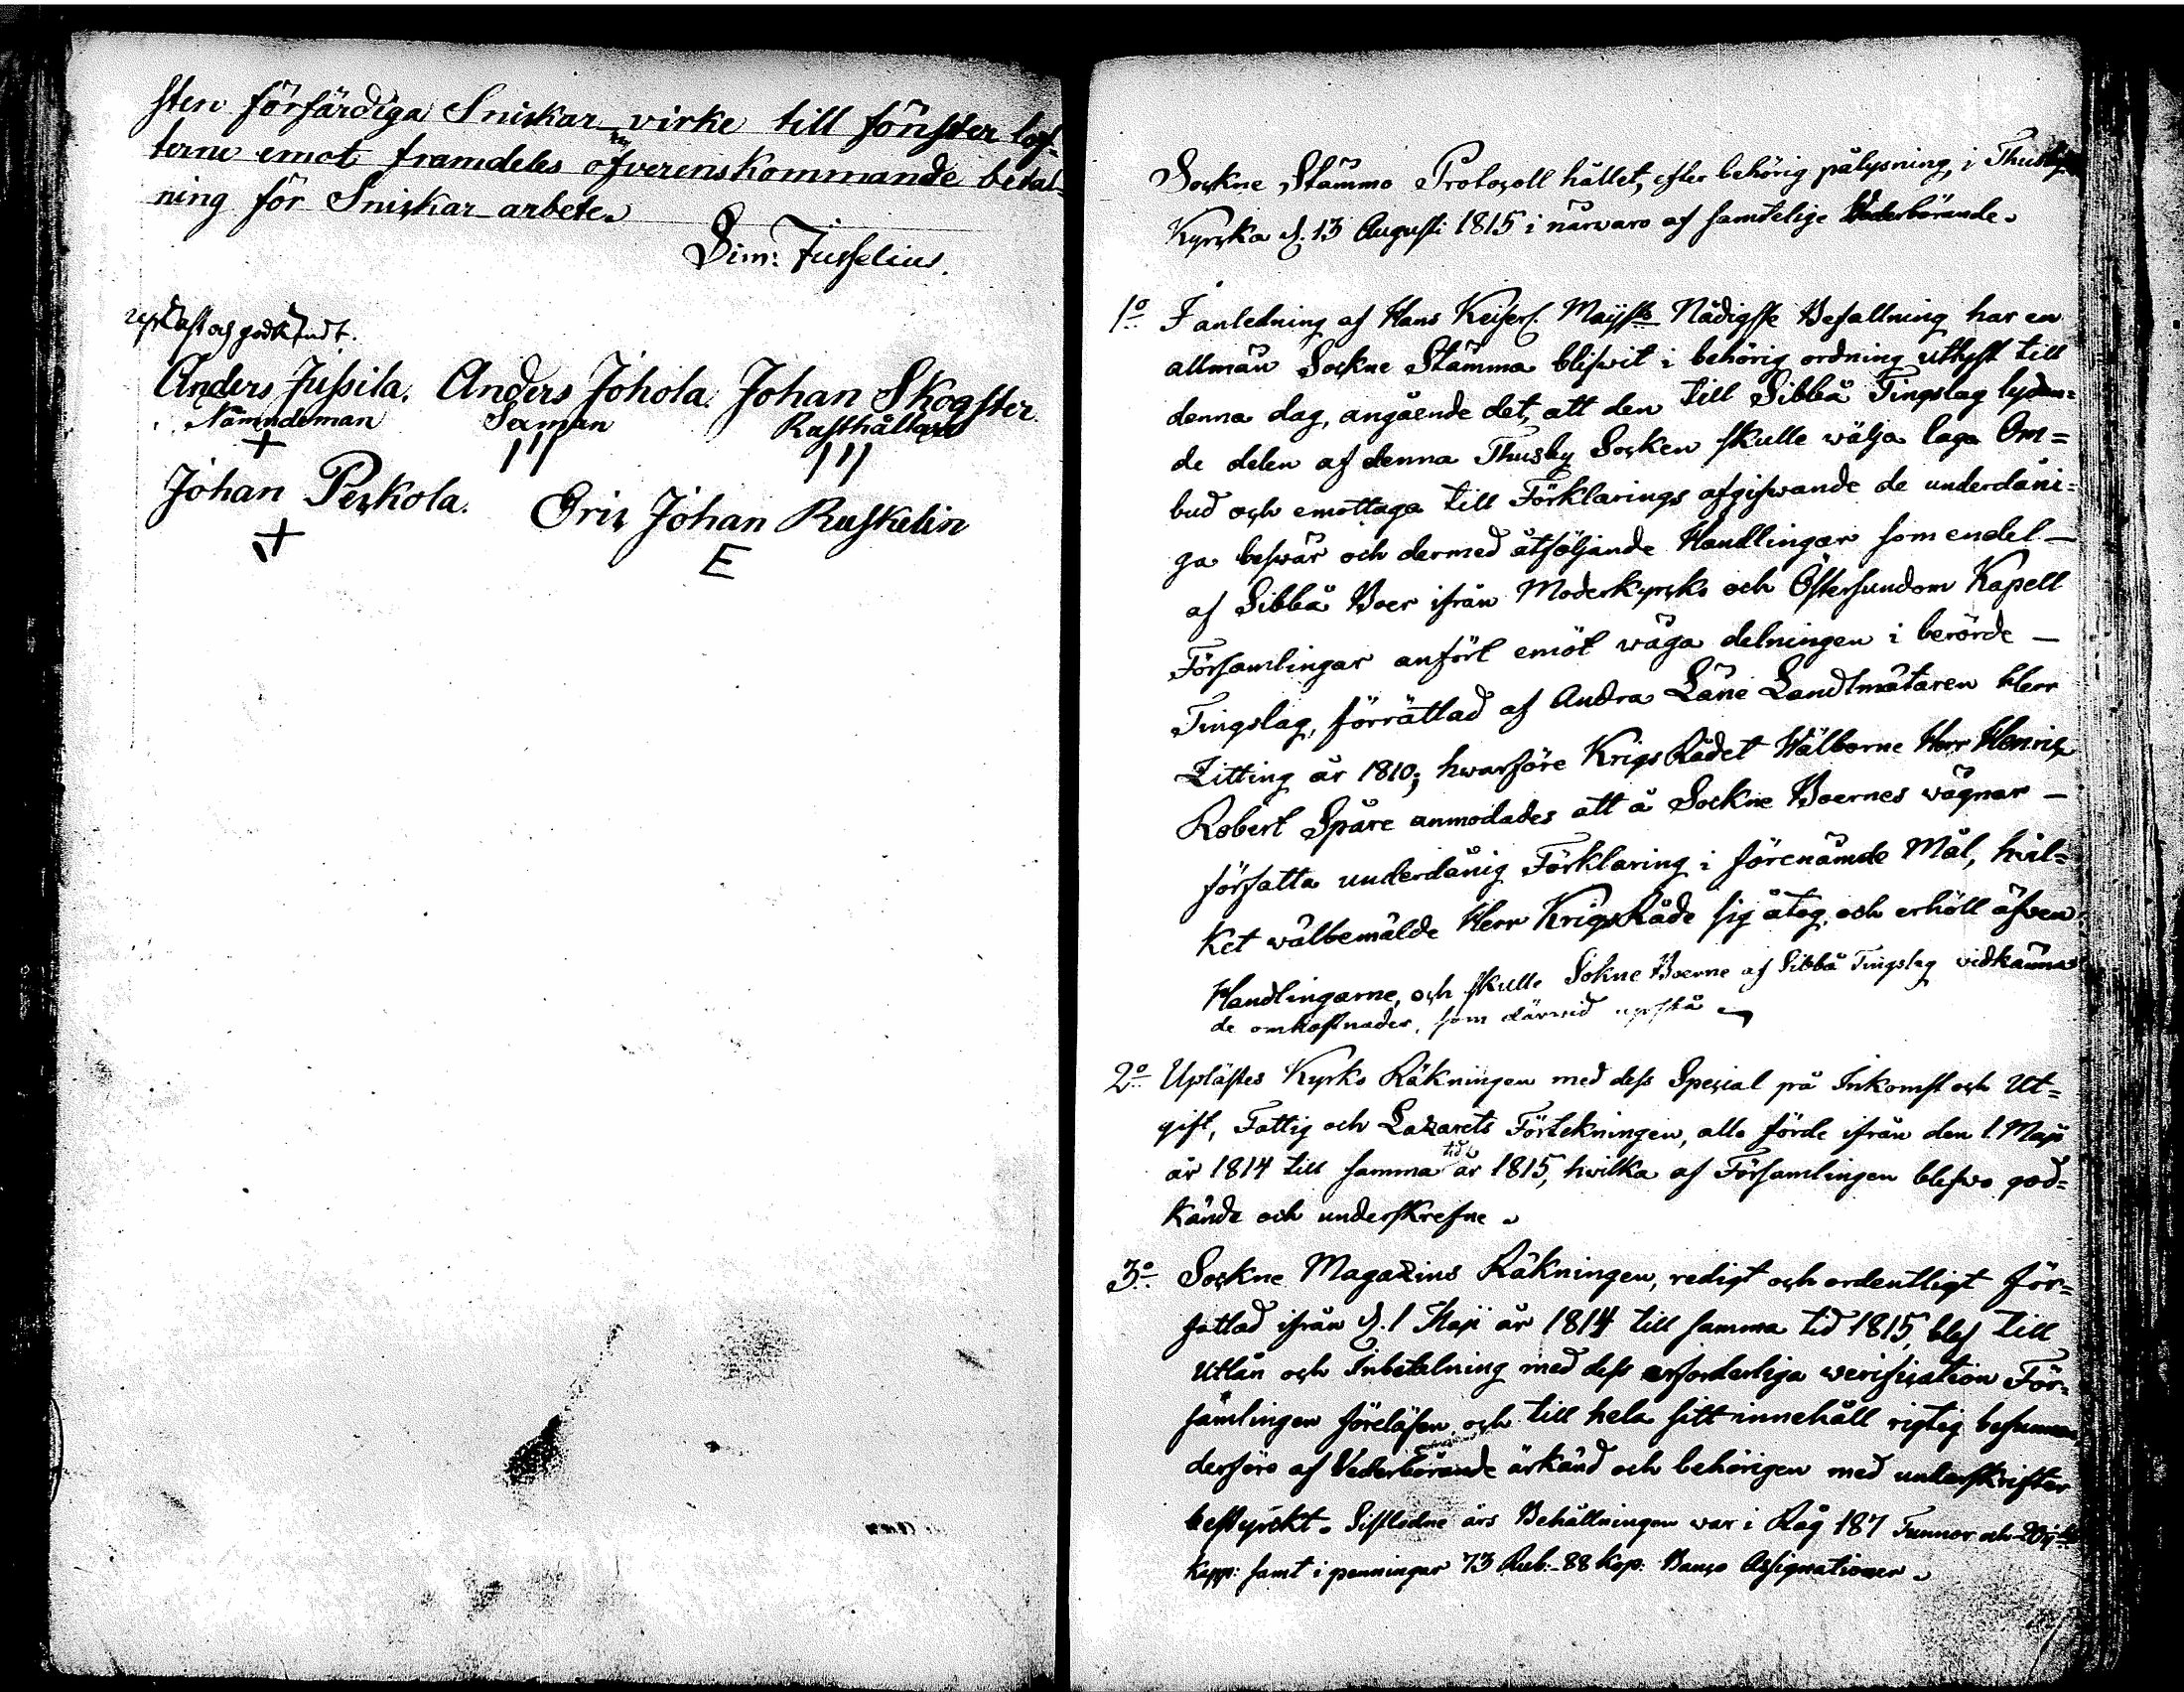 sten förfärdiga Snickar virke till fönster lof-
terne emot framdeles öfverenskommande betal-
ning för Snickar arbete.
Sim: Jusselius.
upläst och godkändt.
Anders Jussila. Anders Johola. Johan Skogster
Nämndeman Sexman Rusthållare
Johan Peckola. Eric Johan Ruskelin
E
Sockne Stämmo Protocoll hållet, efter behörig pålysning, i Thusby
Kyrcka d. 13 Augusti 1815 i närvaro af samtelige Vederbörande.
1o I anledning af Hans Keiserl. Maijsts Nådigste Befallning har en
allmän Sockne Stämma blifwit i behörig ordning utlyst till
denna dag, angående det, att den till Sibbå Tingslag lydan=
de delen af denna Thusby Socken skulle wälja laga Om=
bud och emottaga till Förklarings afgifwande de underdåni=
ga beswär och dermed åtföljande Handlingar som endel —
af Sibbå Boer ifrån Moderkyrcko och Östersundom Kapell
Församlingar anfört emot wäga delningen i berörde —
Tingslag, förrättad af Andra Läne Landtmätaren Herr
Zitting år 1810; hwarföre KrigsRådet Wälborne Herr Henric
Robert Spåre anmodades att å Sockne Boernes wägnar —
författa underdånig Förklaring i förenämde Mål, hvil=
ket wälbemälde Herr KrigsRåde sig åtog, och erhöll äfwen
Handlingarne, och skulle Sokne Boerne af Sibbå Tingslag vidkännas
de omkostnader, som därvid uppstå
2o Uplästes Kyrko Räkningen med dess Special på Inkomst och Ut=
gift, Fattig och Lazarets Förtekningen, alla förde ifrån den 1 Maji
år 1814 till samma tid år 1815, hwilka af Församlingen blefwo god=
kände och underskrefne.
3o Sockne Magazins Räkningen, redigt och ordentligt för=
fattad ifrån d. 1 Maji år 1814 till samma tid 1815, blef till
Utlån och Inbetalning med dess erforderliga werification För=
samlingen föreläsen, och till hela sitt innehåll rigtig befunnen,
derföre af Vederbörande ärkänd och behörigen med underskrifter
bestyrckt. Sistledne års Behållningen war i Råg 187 Tunnor och
Kapp: samt i penningar 73 Rub: 88 kop. Banco Assignationer.